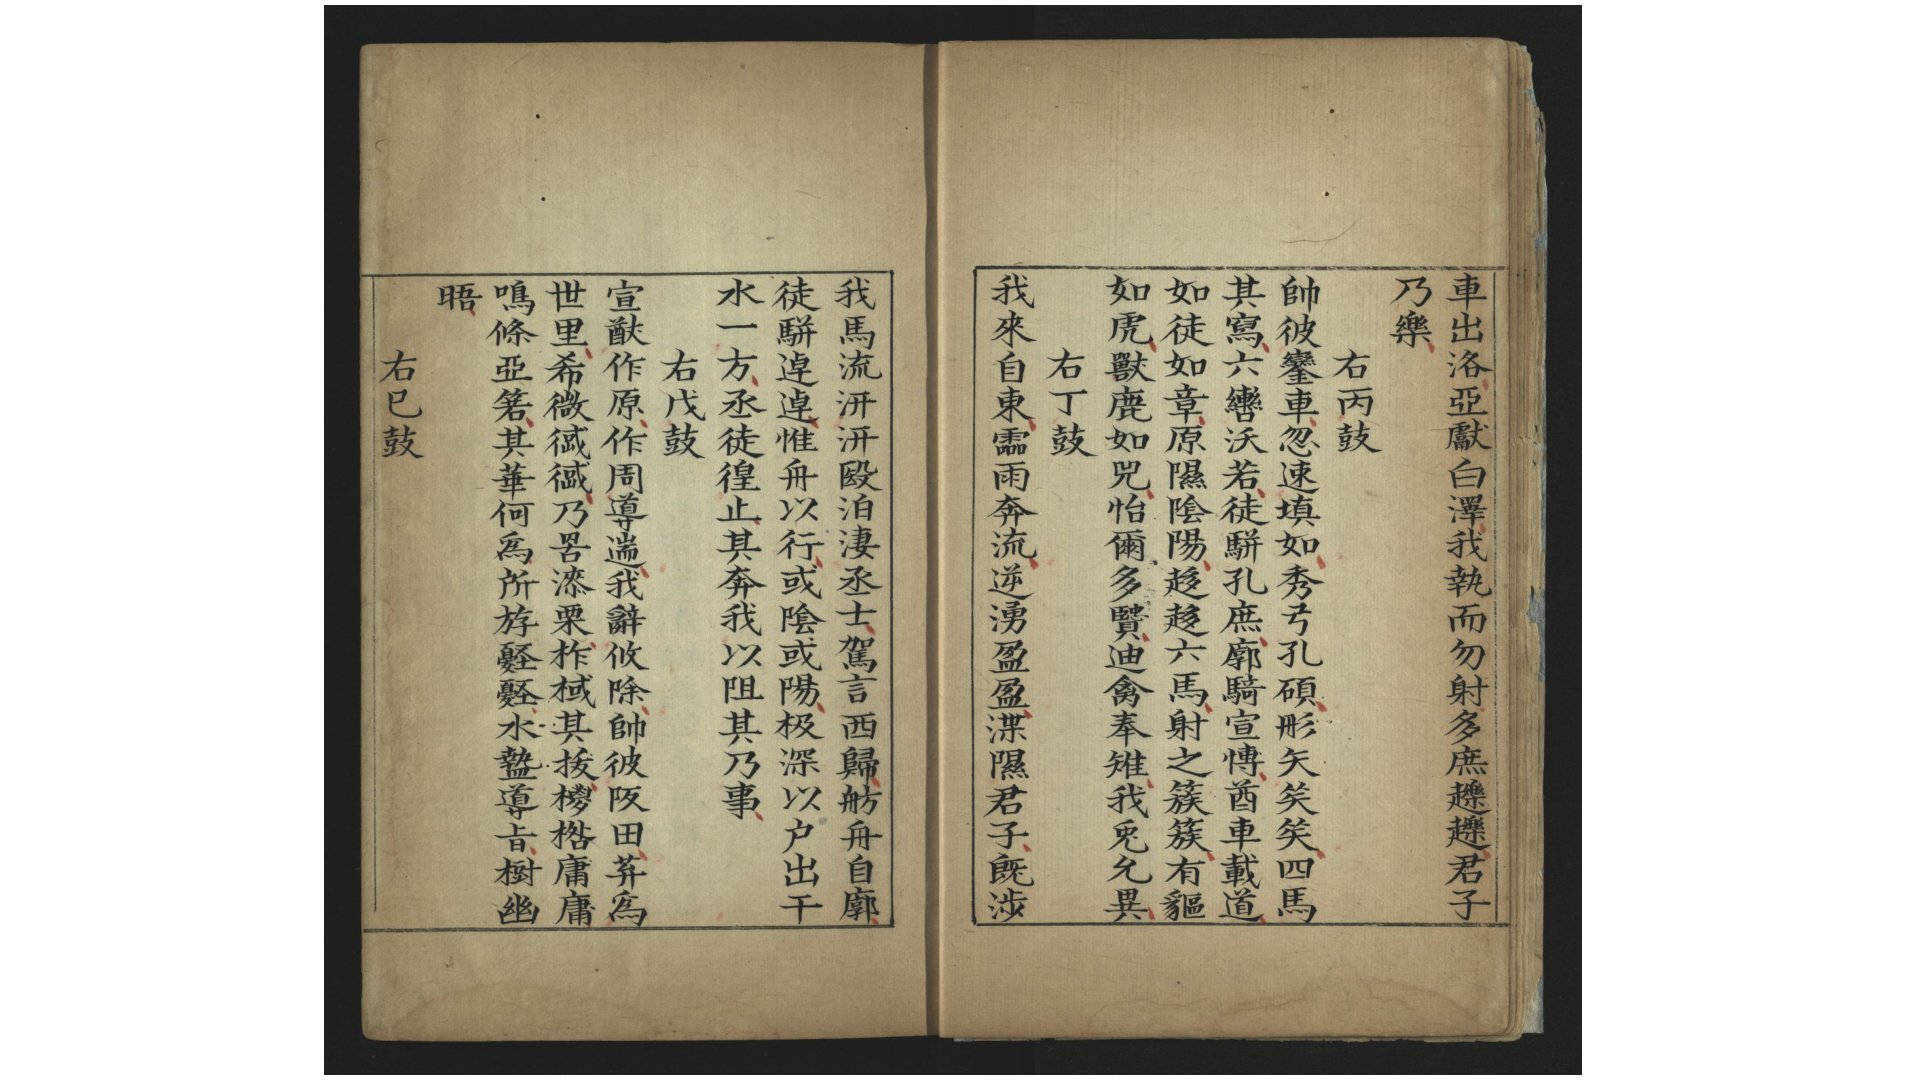 車出洛亞獻白澤我執而勿射多庶趮趮君子
乃樂
右丙鼓
帥彼鑾車忽速填如秀弓孔碩彤矢矣矣四馬
其寫六轡沃若徒騈孔庶廓騎宣愽酋車載道
如徒如章原隰陰陽趍趍六馬射之簇簇有貙
如虎獸鹿如兕怡爾多賢迪禽奉雉我兎允異
右丁鼓
我來自東霝雨奔流逆湧盈盈渫隰君子旣涉
我馬流汧汧毆泊淒丞士駕言西歸舫舟自廓
徒騈逴逴惟舟以行或陰或陽极深以户出干
水一方丞徒徨止其奔我以阻其乃事
右戊鼓
宣猷作原作周導遄我辭攸除帥彼阪田莽爲
世里希微徾徾乃罟漆栗柞棫其拔楊楛庸庸
鳴條亞箬其華何爲所斿水盩導旨樹幽
晤
右巳鼓